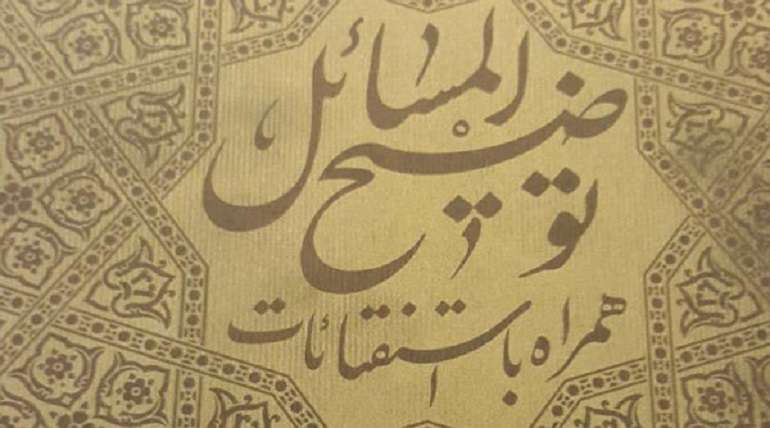 توضیح المسائل
همراه با استفتائات